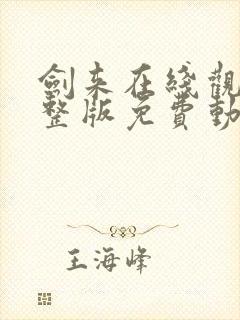 劍来在綫觀
整版免費動
王海峰